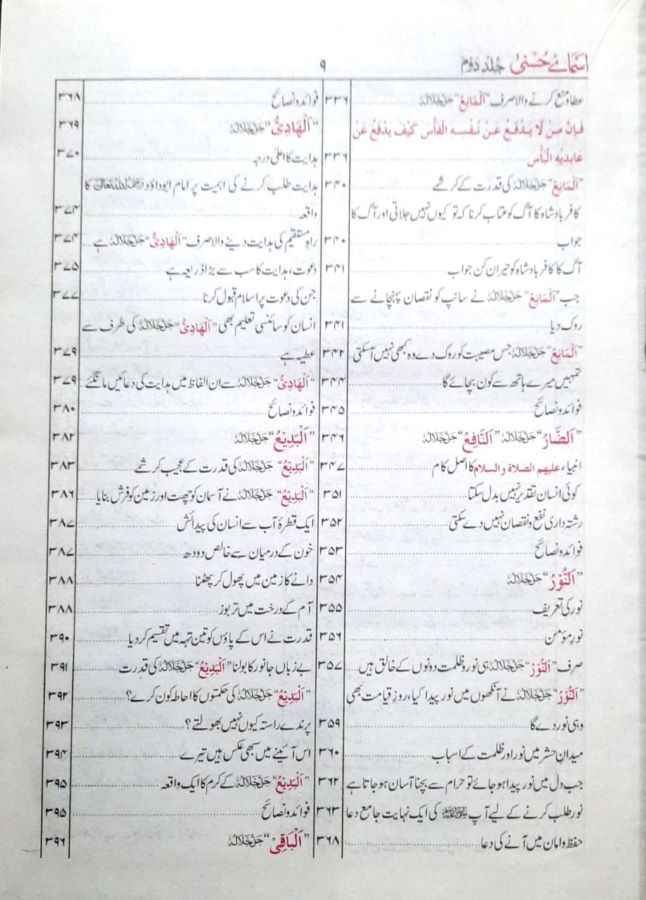 اسمائے حُسنیٰ جلد دوم
۹
عطا و منع کرنے والا صرف "اَلْمَانِعُ" جل جلالہٗ ۳۳۶
فَإِنَّ مَنْ لَا يَدْفَعُ عَنْ نَفْسِهِ الْفَأْسَ كَيْفَ يَدْفَعُ عَنْ
عَابِدِيْهِ الْبَأْسَ ۳۳۶
"اَلْمَانِعُ" جل جلالہٗ کی قدرت کے کرشمے ۳۴۰
کافر بادشاہ کا آگ کو عتاب کرنا کہ تو کیوں نہیں جلاتی اور آگ کا
جواب ۳۴۰
آگ کا کافر بادشاہ کو حیران کن جواب ۳۴۱
جب "اَلْمَانِعُ" جل جلالہٗ نے سانپ کو نقصان پہنچانے سے
روک دیا ۳۴۱
"اَلْمَانِعُ" جل جلالہٗ جس مصیبت کو روک دے وہ کبھی نہیں آسکتی ۳۴۲
تمہیں میرے ہاتھ سے کون بچائے گا ۳۴۴
فوائد و نصائح ۳۴۵
"اَلضَّارُّ" جل جلالہٗ "اَلنَّافِعُ" جل جلالہٗ ۳۴۶
انبیاء علیہم الصلاۃ والسلام کا اصل کام ۳۴۷
کوئی انسان تقدیر نہیں بدل سکتا ۳۵۱
رشتہ داری نفع و نقصان نہیں دے سکتی ۳۵۲
فوائد و نصائح ۳۵۳
"اَلنُّوْرُ" جل جلالہٗ ۳۵۴
نور کی تعریف ۳۵۵
نورِ مؤمن ۳۵۶
صرف "اَلنُّوْرُ" جل جلالہٗ ہی نور و ظلمت دونوں کے خالق ہیں ۳۵۷
"اَلنُّوْرُ" جل جلالہٗ نے آنکھوں میں نور پیدا کیا، روزِ قیامت بھی
وہی نور دے گا ۳۵۹
میدانِ حشر میں نور اور ظلمت کے اسباب ۳۶۰
جب دل میں نور پیدا ہو جائے تو حرام سے بچنا آسان ہو جاتا ہے ۳۶۲
نور طلب کرنے کے لیے آپ ﷺ کی ایک نہایت جامع دعا ۳۶۳
حفظ و امان میں آنے کی دعا ۳۶۸
فوائد و نصائح ۳۶۸
"اَلْهَادِيْ" جل جلالہٗ ۳۶۹
ہدایت کا اعلیٰ درجہ ۳۷۰
ہدایت طلب کرنے کی اہمیت پر امام ابوداؤد رحمۃ اللہ تعالیٰ کا
واقعہ ۳۷۴
راہِ مستقیم کی ہدایت دینے والا صرف "اَلْهَادِيْ" جل جلالہٗ ہے ۳۷۴
دعوت، ہدایت کا سب سے بڑا ذریعہ ہے ۳۷۵
جن کی دعوت پر اسلام قبول کرنا ۳۷۷
انسان کو سائنسی تعلیم بھی "اَلْهَادِيْ" جل جلالہٗ کی طرف سے
عطیہ ہے ۳۷۹
"اَلْهَادِيْ" جل جلالہٗ سے ان الفاظ میں ہدایت کی دعائیں مانگئے ۳۷۹
فوائد و نصائح ۳۸۰
"اَلْبَدِيْعُ" جل جلالہٗ ۳۸۲
"اَلْبَدِيْعُ" جل جلالہٗ کی قدرت کے عجیب کرشمے ۳۸۳
"اَلْبَدِيْعُ" جل جلالہٗ نے آسمان کو چھت اور زمین کو فرش بنایا ۳۸۶
ایک قطرۂ آب سے انسان کی پیدائش ۳۸۷
خون کے درمیان سے خالص دودھ ۳۸۷
دانے کا زمین میں پھول کر پھٹنا ۳۸۸
آم کے درخت میں تربوز ۳۸۸
قدرت نے اس کے پاؤں کو تین تہہ میں تقسیم کر دیا ۳۹۰
بے زباں جانور کا بولنا "اَلْبَدِيْعُ" جل جلالہٗ کی قدرت ۳۹۱
"اَلْبَدِيْعُ" جل جلالہٗ کی حکمتوں کا احاطہ کون کرے؟ ۳۹۲
پرندے راستہ کیوں نہیں بھولتے؟ ۳۹۳
اس آئینے میں سبھی عکس ہیں تیرے ۳۹۴
"اَلْبَدِيْعُ" جل جلالہٗ کے کرم کا ایک واقعہ ۳۹۵
فوائد و نصائح ۳۹۵
"اَلْبَاقِيْ" جل جلالہٗ ۳۹۶